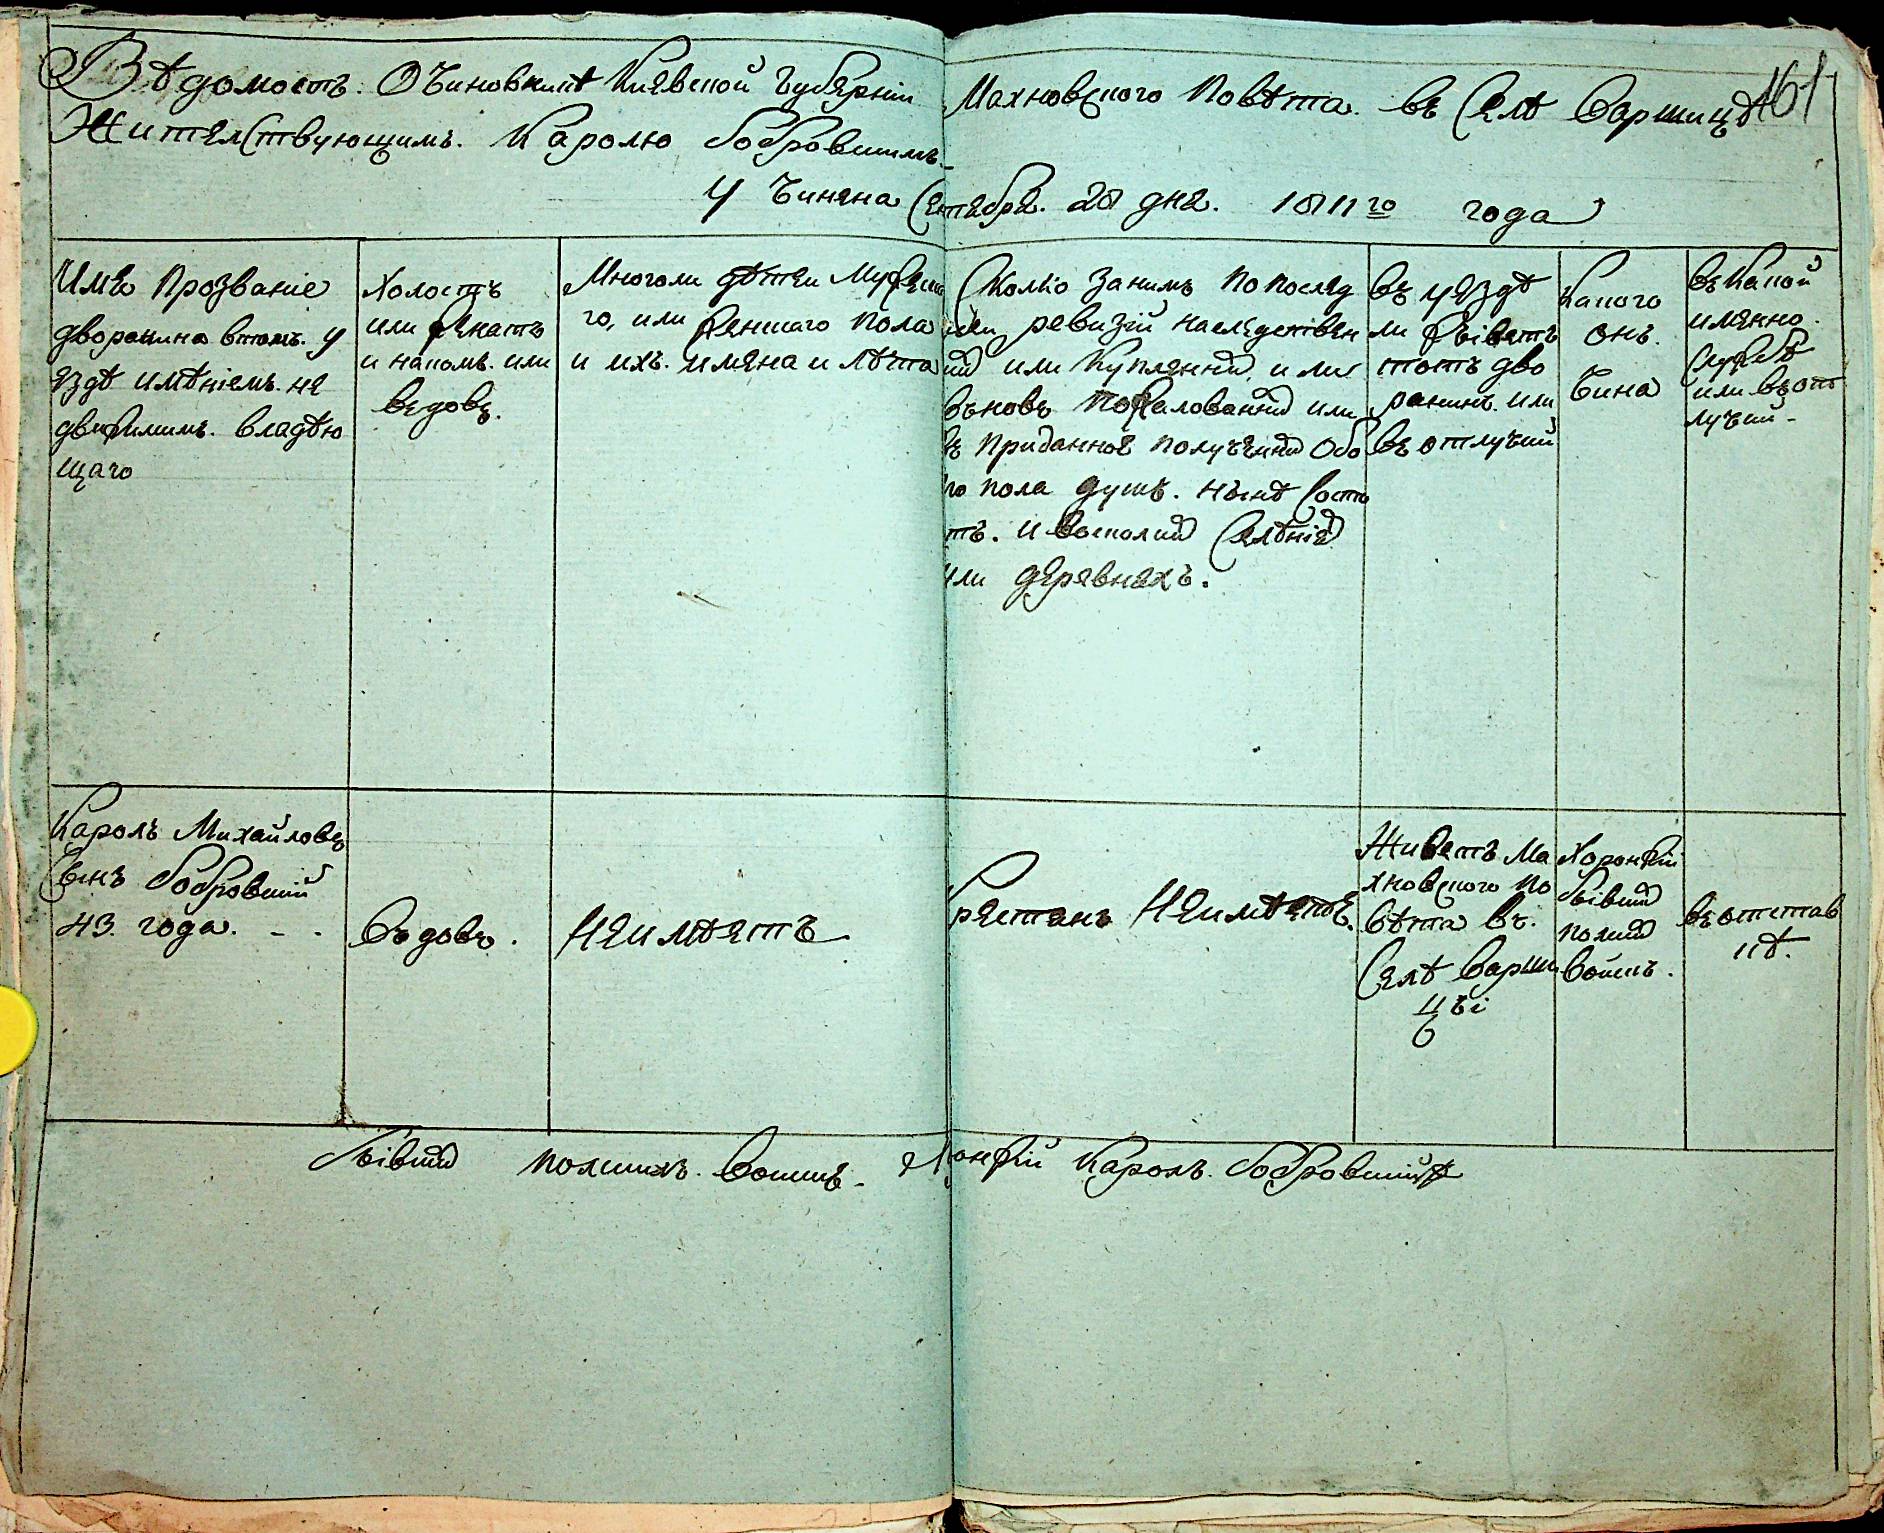 161
Вѣдомость. О Чиновникѣ Киевской Губерніи Махновского Повѣта. въ Селѣ Варшицѣ
Жителствующимъ. Каролю Бобровскимъ.
Учинена Сентебря. 28 дня. 1811го года
Имя Прозваніе
дворанина втомъ. у
ездѣ имѣніемъ. не
движимимъ. владѣю
щаго
Холостъ
или женатъ
и накомъ. или
вдовъ.
Многоли дѣтеи Мужеска
го, или женшаго пола
и ихъ. имена и лѣта
Сколко занимъ попослед
ней ревизій наслѣдствен
или Купленнй, или
вьновь Пожалованнй или
въ Приданное полученнй обо
го пола душъ. нынѣ состо
тъ. и восколкй Селѣній
или деревнехъ.
въ уездѣ
ли живетъ
тотъ дво
ранинъ. или
въ отлучкй
Какого
онъ.
Чина
въ Какой
именно.
службѣ
или въ от
лучкй -
Кароль Михайловъ
Сынъ Бобровский
43. года. - .
Вьдовъ.
Неимѣетъ
Крестянъ Неимѣетъ.
Живетъ Ма
хновского по
вѣта въ.
Селѣ Варши
цы
Хоронжій
бывшй
полскй
войскъ.
въ отстав
кѣ.
бывшй полскихъ. воискъ - Хоронжій Кароль. Бобровский